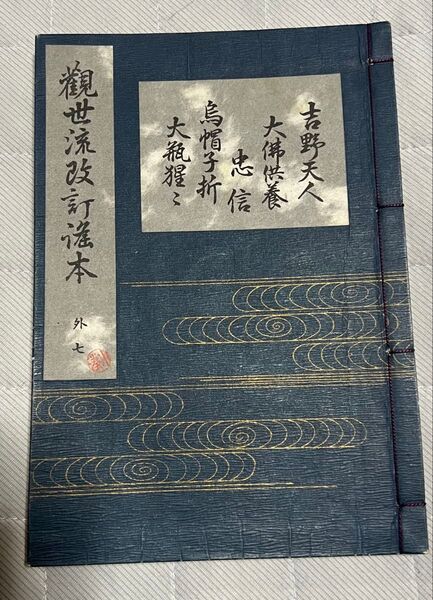 吉野天人
大佛供養
忠信
烏帽子折
大瓶猩〻
觀世流改訂謠本
外七